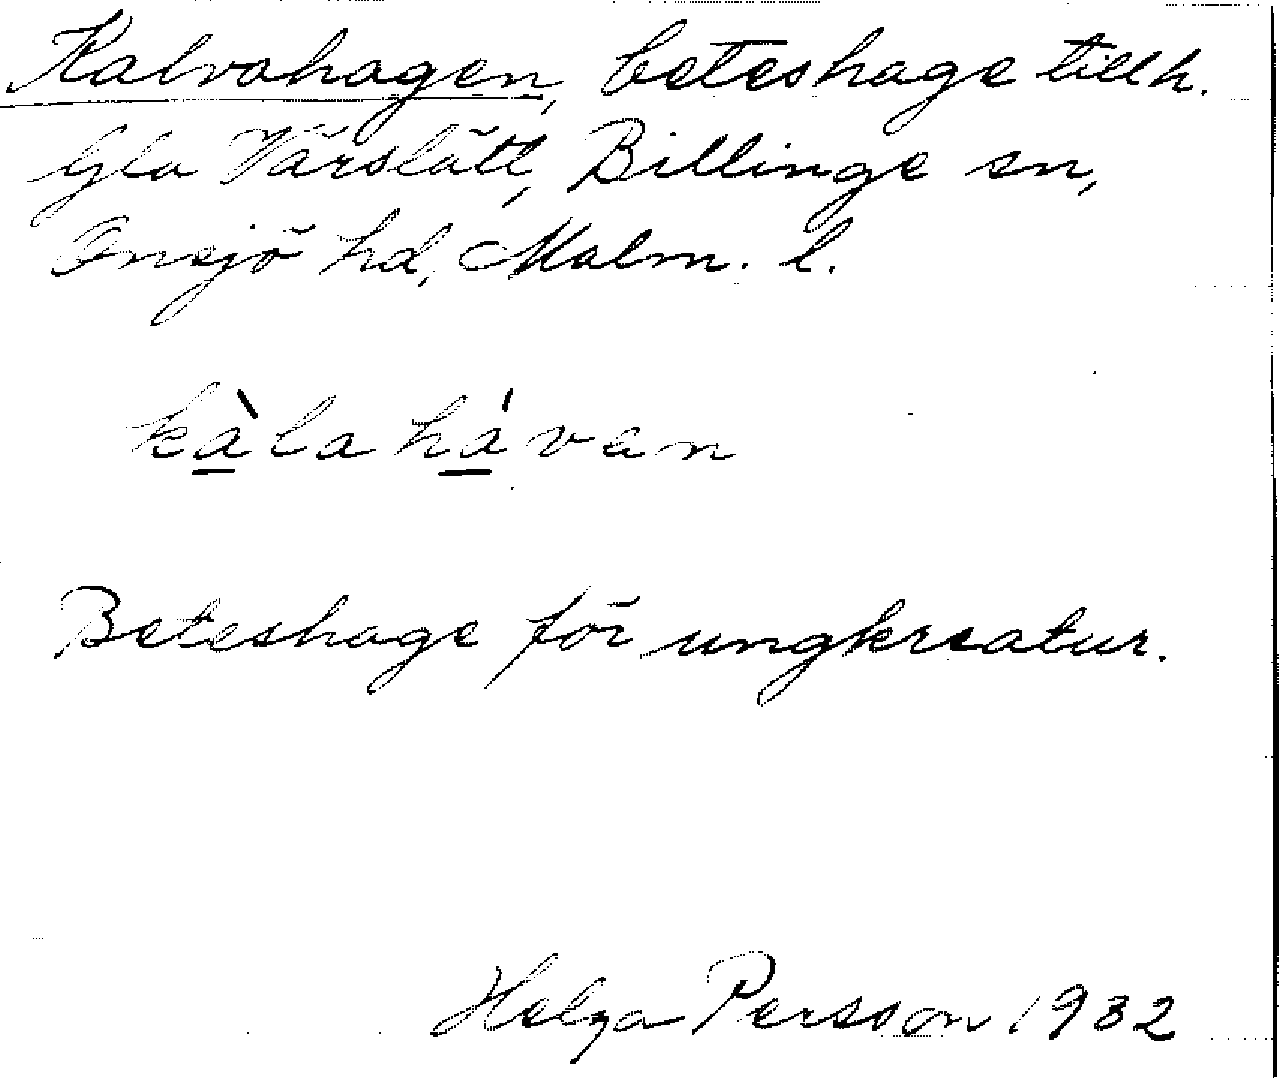 Kalvahagen, beteshage tillh.
Gla Värslätt, Billinge sn,
Onsjö hd, Malm. l.
kàlahávan
Beteshage för ungkreatur.
Helga Persson 1932